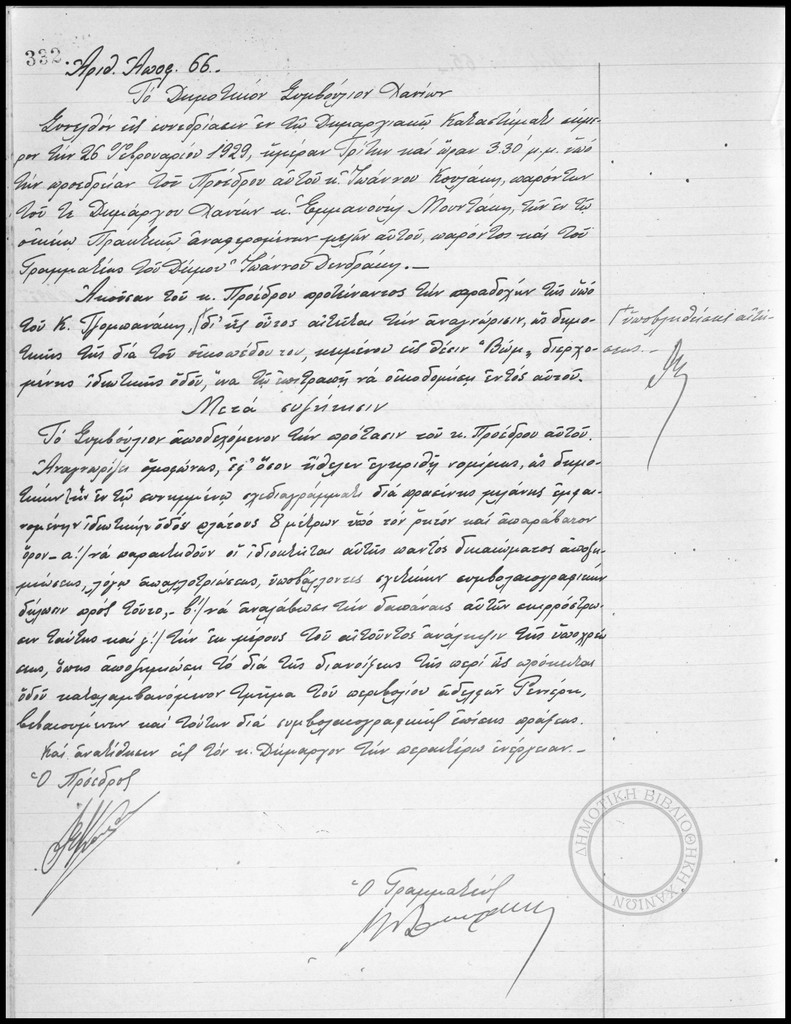 332.
Ἀριθ. Ἀποφ. 66.
Τό Δημοτικόν Συμβούλιον Χανίων
Συνελθόν εἰς συνεδρίασιν ἐν τῷ Δημαρχιακῷ Καταστήματι σήμε-
ρον τήν 26 Φεβρουαρίου 1929, ἡμέραν Τρίτην καί ὥραν 3.30 μ.μ. ὑπό
τήν προεδρείαν τοῦ Προέδρου αὐτοῦ κ. Ἰωάννου Κουλάκη, παρόντων
τοῦ κ. Δημάρχου Χανίων κ. Ἐμμανουήλ Μουντάκη, τῶν ἐν τῷ
οἰκείῳ Πρακτικῷ ἀναφερομένων μελῶν αὐτοῦ, παρόντος καί τοῦ
Γραμματέως τοῦ Δήμου Ἰωάννου Δενδράκη.—
Ἀκοῦσαν τοῦ κ. Προέδρου προτείναντος τήν παραδοχήν τῆς ὑπό
τοῦ Κ. Γ δι' ἧς οὗτος αἰτεῖται τήν ἀναγνώρισιν, ὡς δημο-
τικῆς τῆς διά τοῦ οἰκοπέδου του, κειμένου εἰς θέσιν "Βώμ" διερχο-
μένης ἰδιωτικῆς ὁδοῦ, ἵνα τῷ ἐπιτραπῇ νά οἰκοδομήσῃ ἐντός αὐτοῦ.
Γ ὑποβληθείσης αἰτή-
σεως.—
Μετά συζήτησιν
Τό Συμβούλιον ἀποδεχόμενον τήν πρότασιν τοῦ κ. Προέδρου αὐτοῦ.
Ἀναγνωρίζει ὁμοφώνως, ἐφ' ὅσον ἤθελεν ἐγκριθῆ νομίμως, ὡς δημο-
τικήν τήν ἐν τῷ συνημμένῳ σχεδιαγράμματι διά πρασίνης μελάνης ἐμφαι-
νομένην ἰδιωτικήν ὁδόν πλάτους 8 μέτρων ὑπό τόν ῥητόν καί ἀπαράβατον
ὅρον — α!) νά παραιτηθοῦν οἱ ἰδιοκτῆται αὐτῆς παντός δικαιώματος ἀποζη-
μιώσεως, λόγῳ ἀπαλλοτριώσεως, ὑποβάλλοντες σχετικήν συμβολαιογραφικήν
δήλωσιν πρός τοῦτο,— β!) νά ἀναλάβωσι τήν δαπάνην αὐτῶν σκυρόστρω-
σιν ταύτης καί γ!) τήν ἐκ μέρους τοῦ αἰτοῦντος ἀνάληψιν τῆς ὑποχρεώ
σεως, ὅπως ἀποζημιώσῃ τό διά τῆς διανοίξεως τῆς περί ἧς πρόκειται
ὁδοῦ καταλαμβανόμενον τμῆμα τοῦ περιβολίου ἀδελφῶν Ρενιέρη,
βεβαιουμένων καί τούτων διά συμβολαιογραφικῆς ἐπίσης πράξεως.
Καί ἀνατίθησιν εἰς τόν κ. Δήμαρχον τήν περαιτέρω ἐνέργειαν.—
Ὁ Πρόεδρος
Ὁ Γραμματεύς
ΔΗΜΟΤΙΚΗ ΒΙΒΛΙΟΘΗΚΗ ΧΑΝΙΩΝ